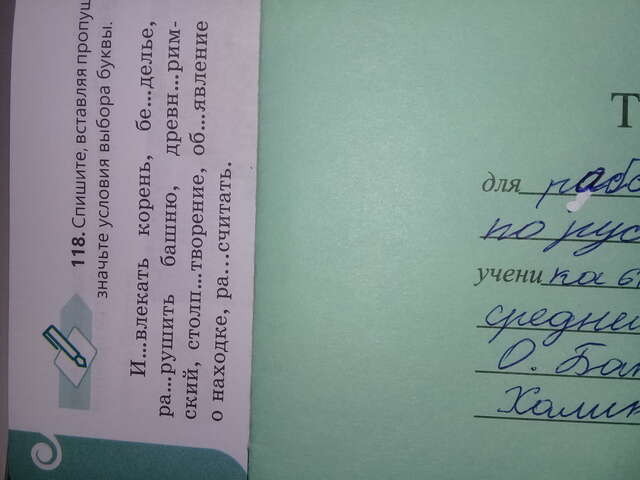 118. Спишите, вставляя
значьте условия выбора буквы.
И...влекать корень, бе...делье,
ра...рушить башню, древн...рим-
ский, столп...творение, об...явление
о находке, ра...считать.
Т
для
по
учени ка
средней
О.